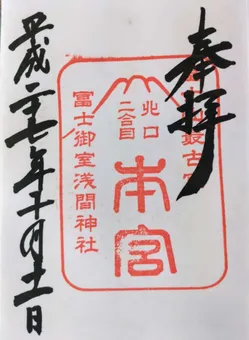 奉拝
北口
二合目
本宮
富士御室浅間神社
平成二十七年十一月十一日